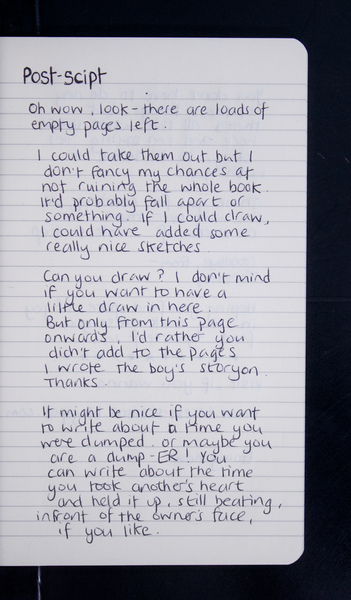 Post-scipt
Oh wow, look - there are loads of
empty pages left.
I could take them out but I
don't fancy my chances at
not ruining the whole book.
It'd probably fall apart or
something. If I could draw,
I could have added some
really nice sketches
Can you draw? I don't mind
if you want to have a
little draw in here.
But only from this page
onwards, I'd rather you
didn't add to the pages
I wrote the boy's story on.
Thanks.
It might be nice if you want
to write about a time you
were dumped. or maybe you
are a dump-ER! You
can write about the time
you took another's heart
and held it up, still beating,
infront of the owner's face,
if you like.